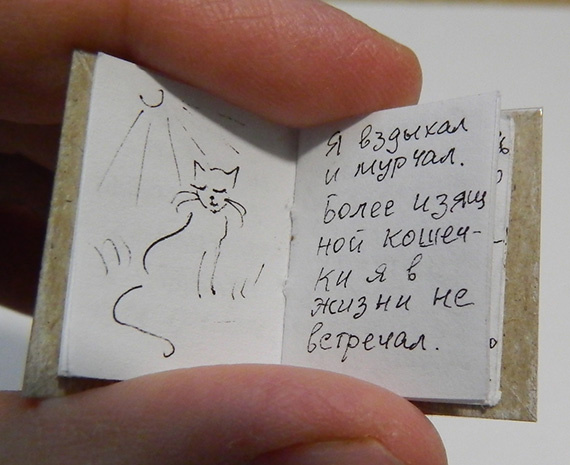 Я вздыхал
и мурчал.
Более изящ
ной кошеч-
ки я в
жизни не
встречал.